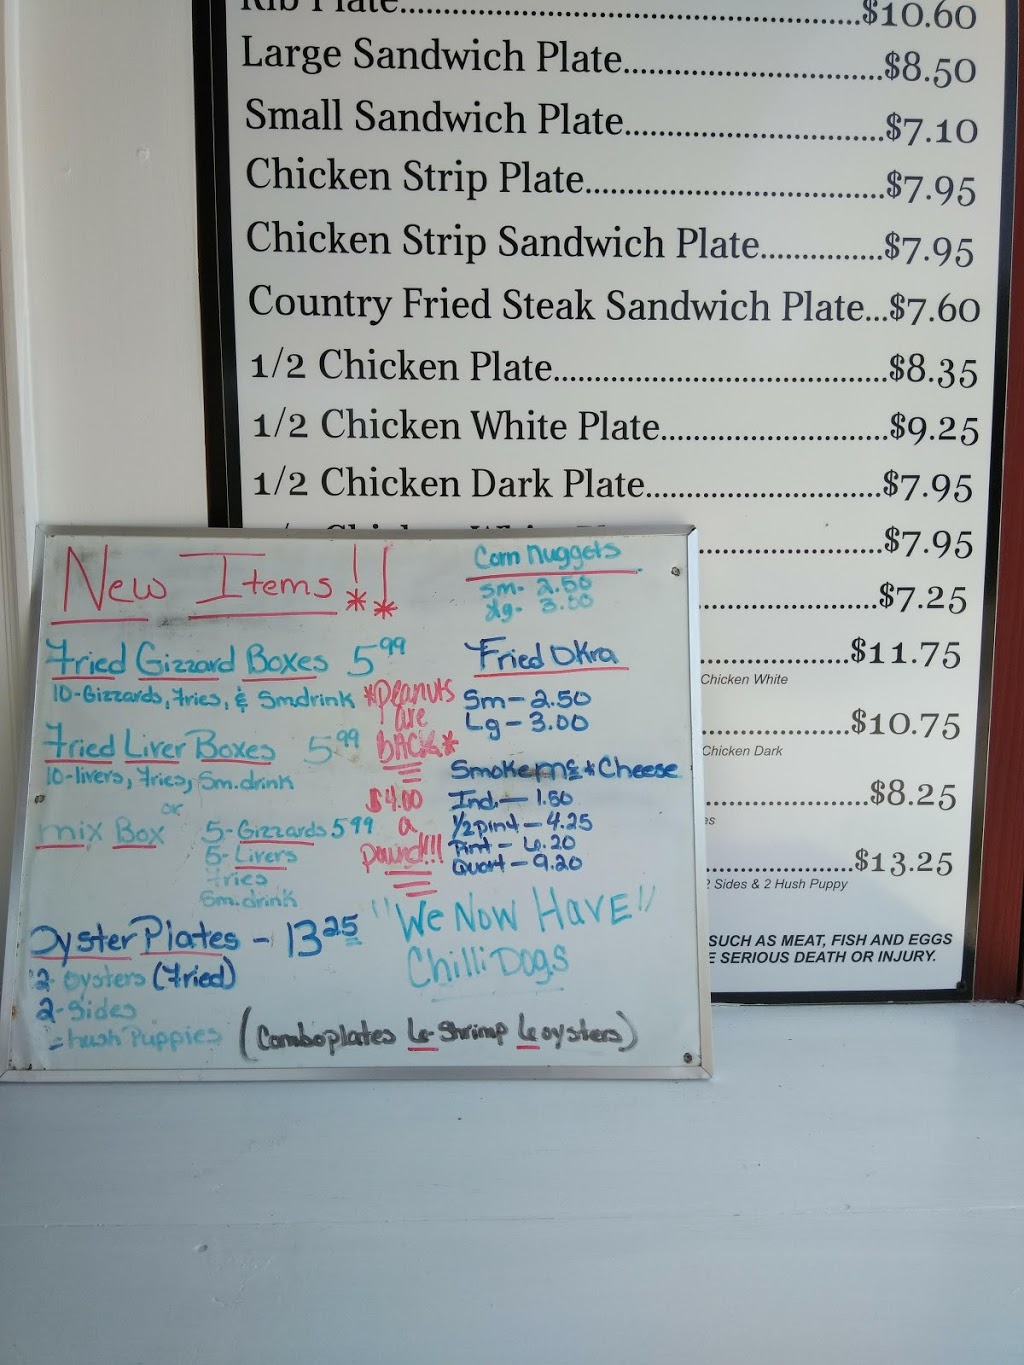 Rib Plate..........$10.60
Large Sandwich Plate..........$8.50
Small Sandwich Plate..........$7.10
Chicken Strip Plate..........$7.95
Chicken Strip Sandwich Plate..........$7.95
Country Fried Steak Sandwich Plate...$7.60
1/2 Chicken Plate..........$8.35
1/2 Chicken White Plate..........$9.25
1/2 Chicken Dark Plate..........$7.95
..........$7.95
..........$7.25
..........$11.75
Chicken White
..........$10.75
Chicken Dark
..........$8.25
..........$13.25
2 Sides & 2 Hush Puppy
SUCH AS MEAT, FISH AND EGGS
SERIOUS DEATH OR INJURY.
New Items!!
Fried Gizzard Boxes 5.99
10-Gizzards, fries, & Smdrink
Fried Liver Boxes 5.99
10-livers, fries, Sm.drink
or
mix Box 5-Gizzards 5.99
5-Livers
fries
Sm.drink
Oyster Plates - 13.25
oysters (Fried)
2-Sides
hush Puppies
(Comboplates 6-Shrimp 6 oysters)
*Peanuts
are
BACK*
$4.00
a
pound!!!
Corn Nuggets
Sm- 2.50
Lg-
Fried OKra
Sm-2.50
Lg-3.00
Cheese
Ind.- 1.50
1/2pint-4.25
Pint-6.20
Quart-9.20
"We Now Have"
Chilli Dogs